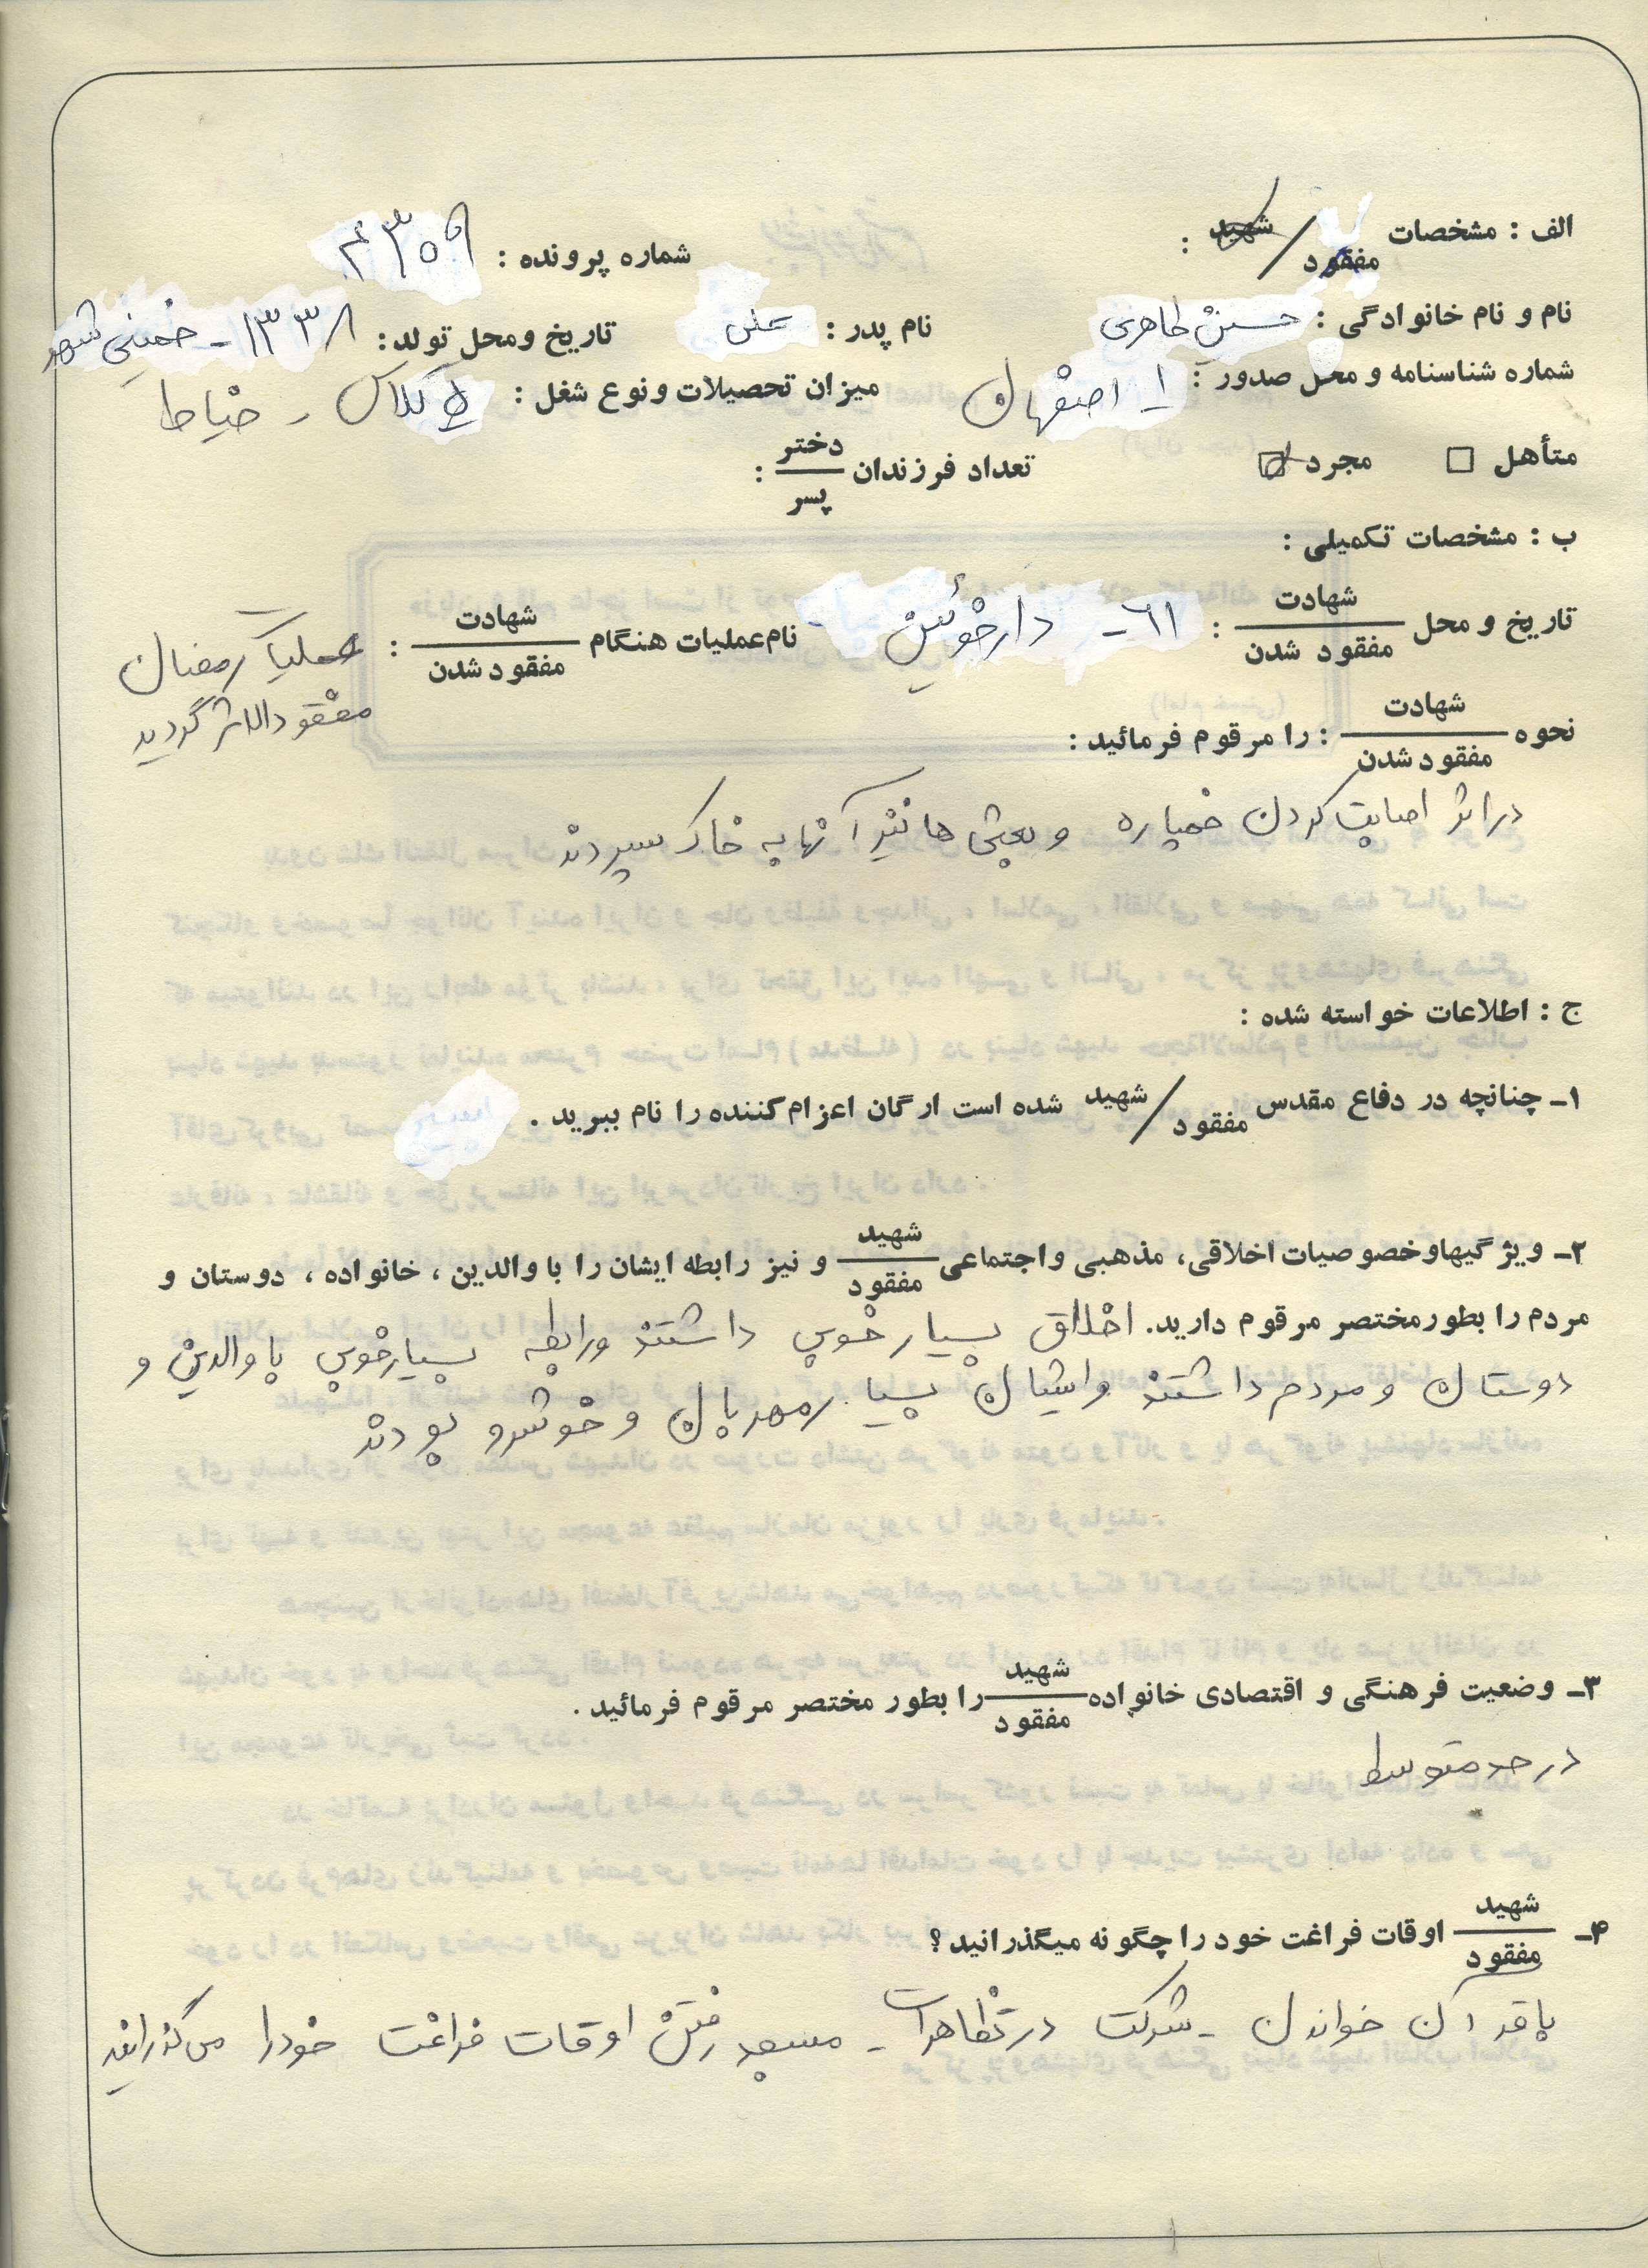 الف : مشخصات شهید / مفقود :
شماره پرونده : ۴۳۰۹
نام و نام خانوادگی : حسین طاهری نام پدر : علی تاریخ ومحل تولد: ۱۳۳۸ - خمینی شهر
شماره شناسنامه و محل صدور : ۱ - اصفهان میزان تحصیلات ونوع شغل : کلاس - خیاط
متأهل □ مجرد ☑ تعداد فرزندان دختر / پسر :
ب : مشخصات تکمیلی :
تاریخ و محل شهادت / مفقود شدن : ۶۱ - دارخوئین نام عملیات هنگام شهادت / مفقود شدن : عملیات رمضان
مفقودالاثر گردید
نحوه شهادت / مفقود شدن : را مرقوم فرمائید :
در اثر اصابت کردن خمپاره و بعثی ها نیز آنها به خاک سپردند
ج : اطلاعات خواسته شده :
۱- چنانچه در دفاع مقدس شهید / مفقود شده است ارگان اعزام کننده را نام ببرید .
۲- ویژگیهاوخصوصیات اخلاقی، مذهبی واجتماعی شهید / مفقود و نیز رابطه ایشان را با والدین ، خانواده ، دوستان و
مردم را بطور مختصر مرقوم دارید. اخلاق بسیار خوبی داشتند ورابطه بسیار خوبی با والدین و
دوستان و مردم داشتند وایشان بسیار مهربان و خوشرو بودند
۳- وضعیت فرهنگی و اقتصادی خانواده شهید / مفقود را بطور مختصر مرقوم فرمائید .
در حد متوسط
۴- شهید / مفقود اوقات فراغت خود را چگونه میگذرانید ؟
با قرآن خواندن - شرکت در تظاهرات - مسجد رفتن اوقات فراغت خود را می گذرانید